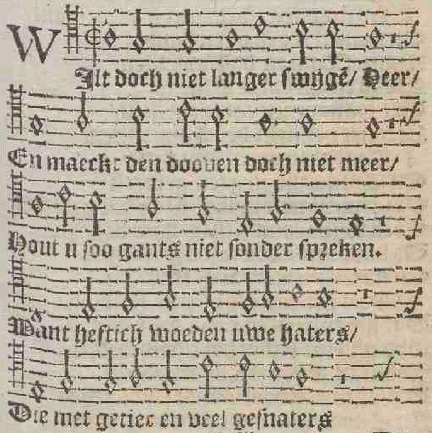 WIlt doch niet langer swijgē/ Heer/
En maeckt den dooven doch niet meer/
Hout u soo gants niet sonder spreken.
Want heftich woeden uwe haters/
Die met getier en veel gesnaters